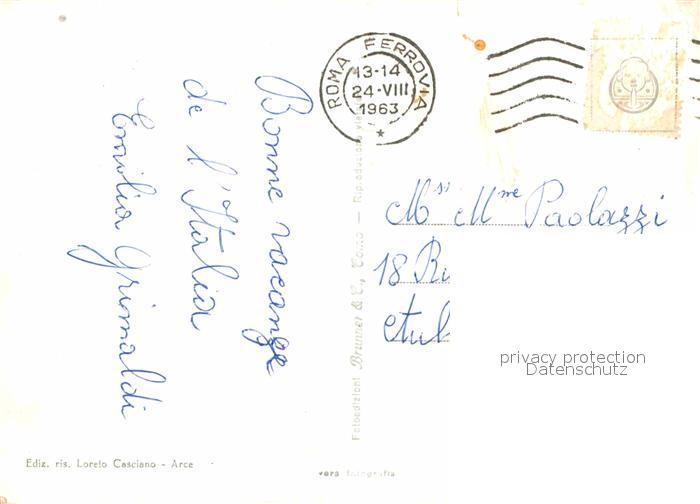 Bonne vacange
de l'Italia
Emilia Grimaldi
ROMA FERROVIA
13-14
24·VIII
1963
Msi Mme Paolazzi
18 Ri
privacy protection
Datenschutz
Fotoedizioni Brunner & C., Como — Riproduzione vie
Ediz. ris. Loreto Casciano - Arce
vera fotografia